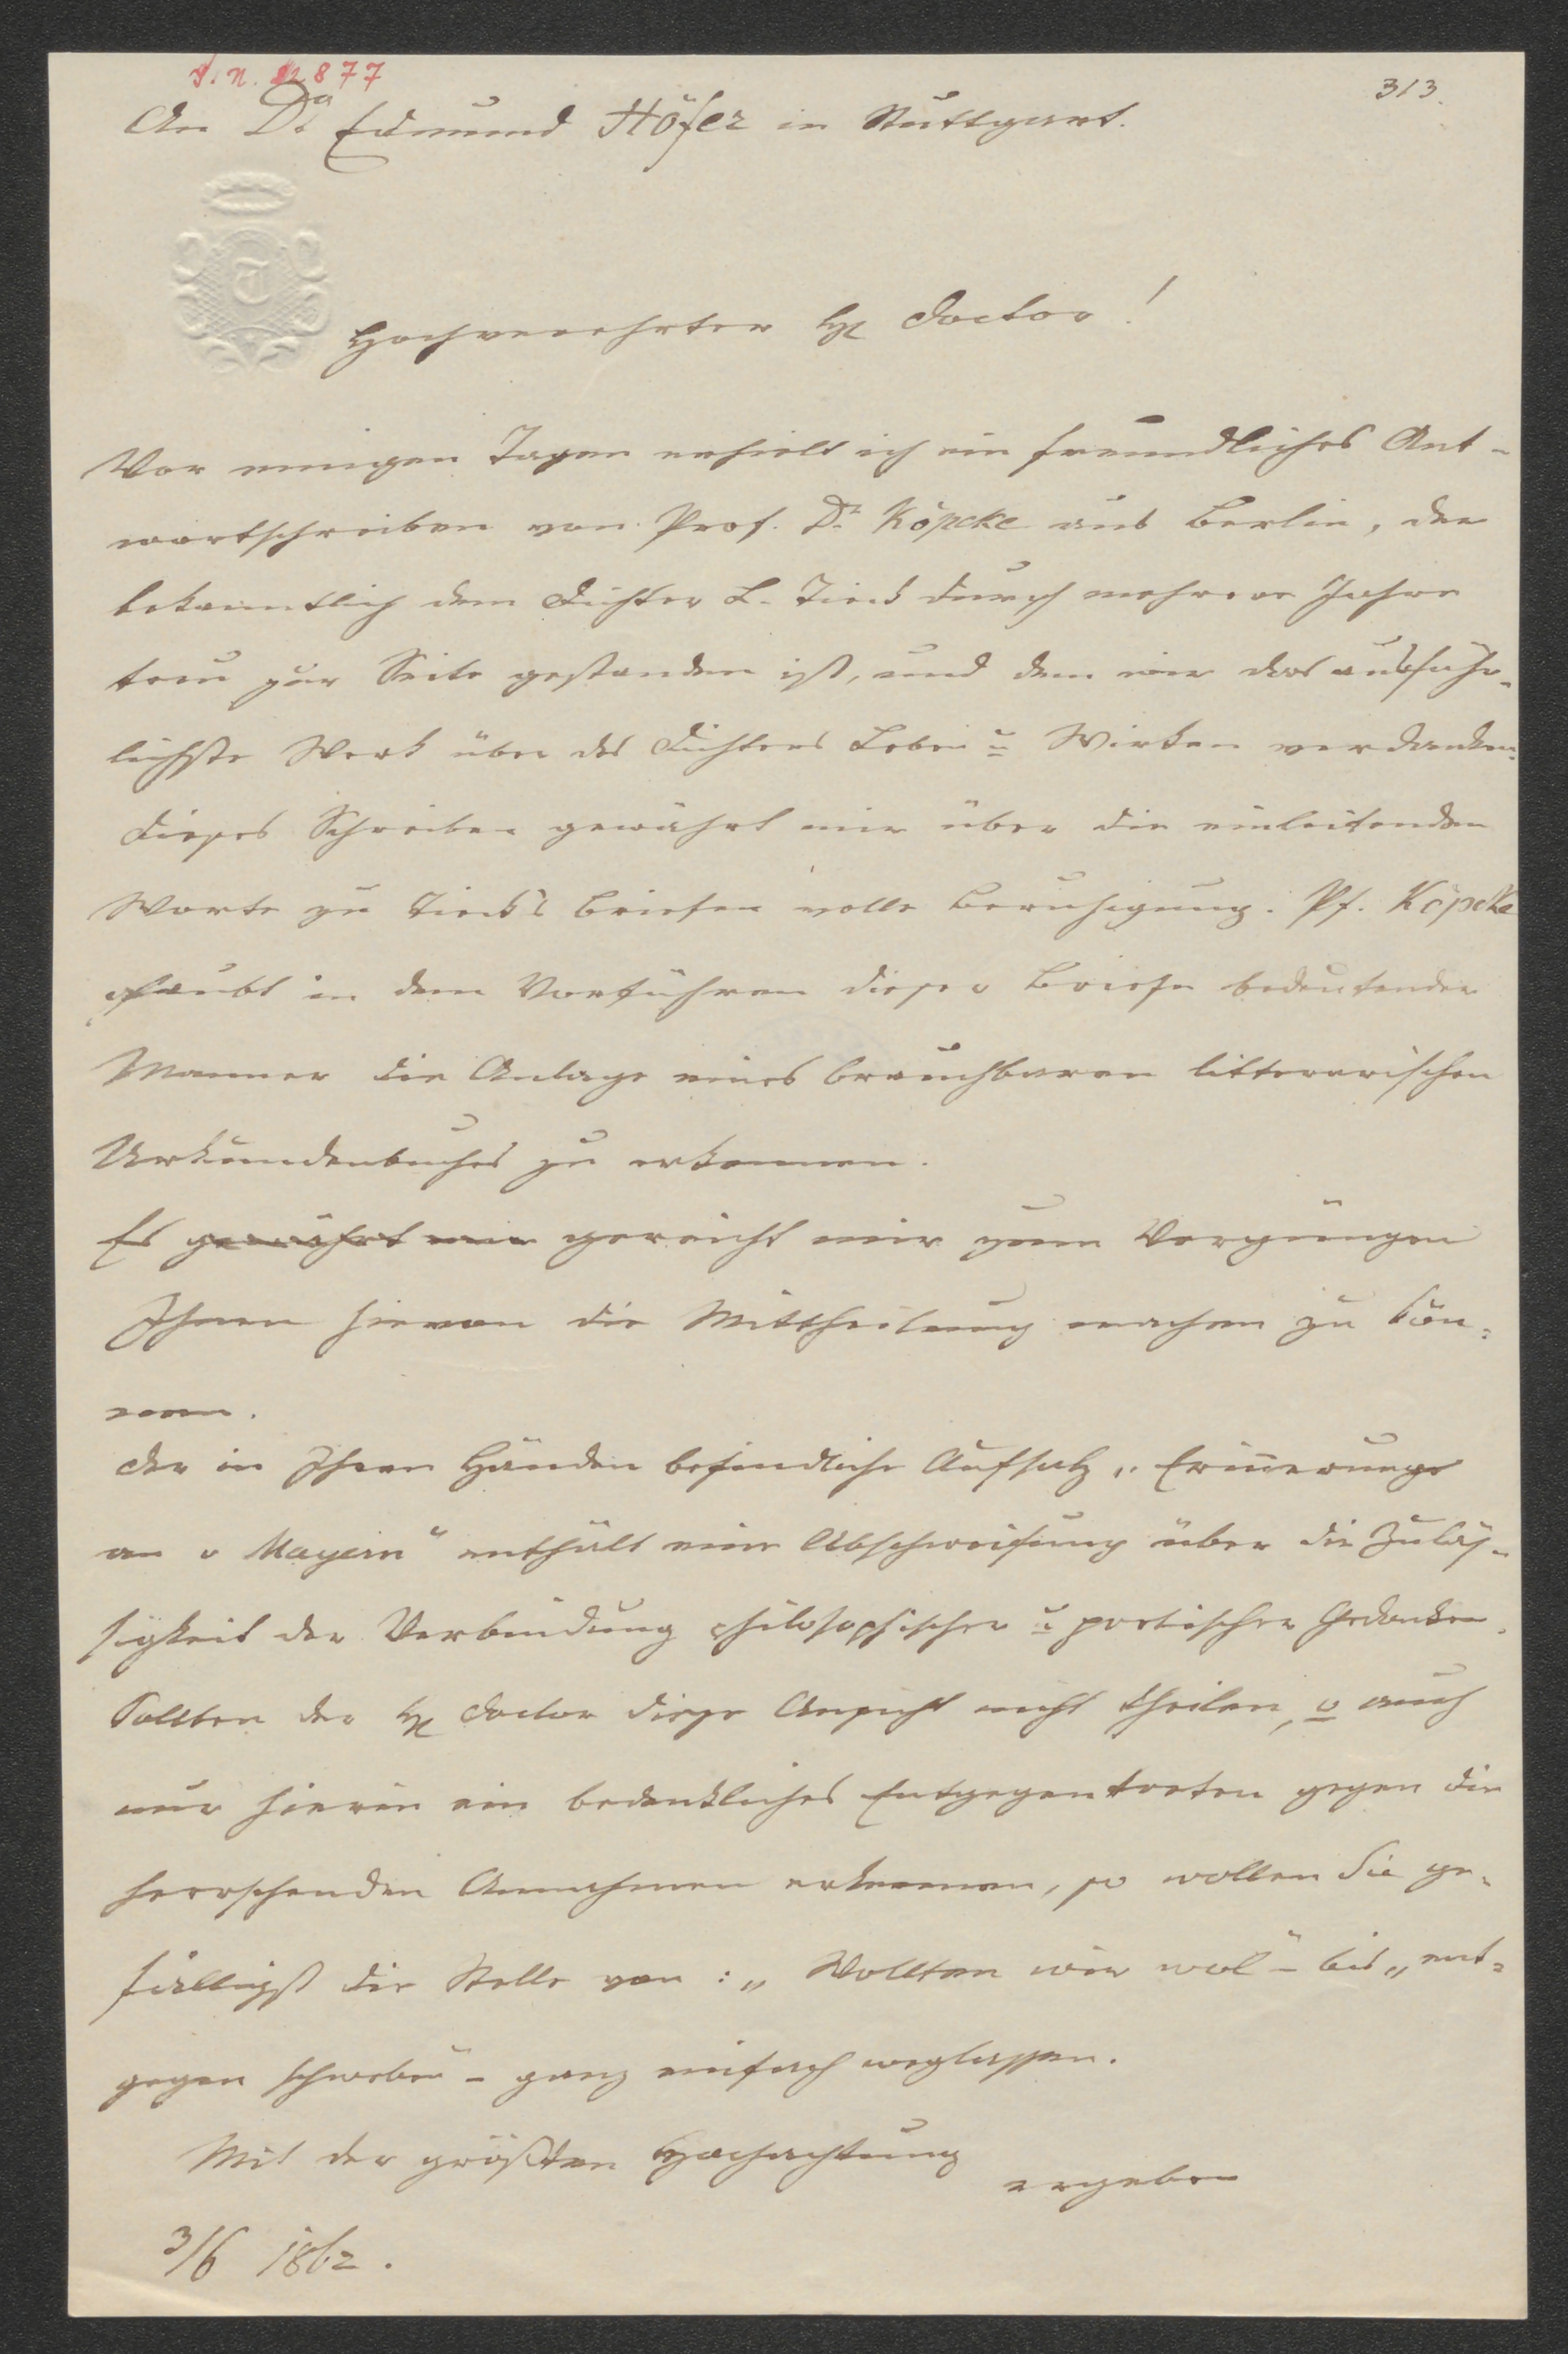 I. N. 12877
313.
An Dr Edmund Höfer in Stuttgart.
T
Hochverehrter H. Doctor!
Vor einigen Tagen erhielt ich ein freundliches Ant-
wortschreiben von Prof. Dr Köpcke aus Berlin, der
bekanntlich dem Dichter L. Tieck durch mehrere Jahre
treu zur Seite gestanden ist, und dem wir das ausführ-
lichste Werk über des Dichters Leben u Wirken verdanken.
Dieses Schreiben gewährt mir über die einleitenden
Worte zu Tieck's Briefen volle Beruhigung. Pf. Köpcke
glaubt in dem Vorführen dieser Briefe bedeutender
Männer die Anlage eines brauchbaren litterarischen
Urkundenbuches zu erkennen.
Es gewährt mir gereicht mir zum Vergnügen
Ihnen hievon die Mittheilung machen zu kön-
nen.
Der in Ihren Händen befindliche Aufsatz „Erinnerunge
an v Mayern" enthält eine Abschweifung über die Zuläs-
sigkeit der Verbindung philosophischer u poetischer Gedanken.
Sollten der H. Doctor diese Ansicht nicht theilen, o auch
nur hierin ein bedenkliches Entgegentreten gegen die
herrschenden Annahmen erkennen, so wollen Sie ge-
fälligst die Stelle von: „Wollten wir wol" – bis „ent-
gegen schweben" – ganz einfach weglassen.
Mit der größten Hochachtung
ergeben
3/6 1862.